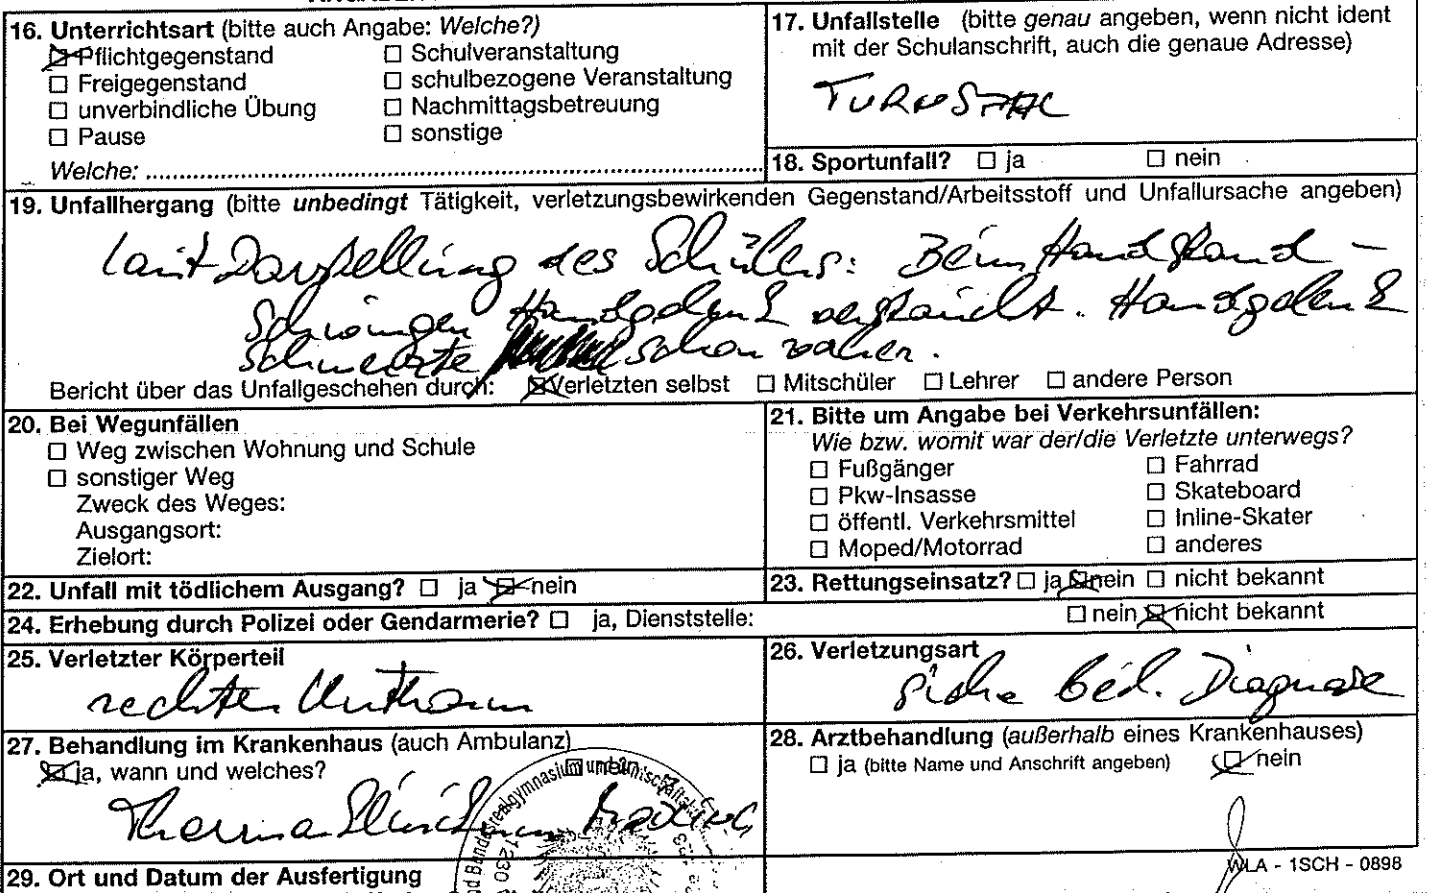 16. Unterrichtsart (bitte auch Angabe: Welche?)
Pflichtgegenstand
Freigegenstand
unverbindliche Übung
Pause
Schulveranstaltung
schulbezogene Veranstaltung
Nachmittagsbetreuung
sonstige
Welche:
17. Unfallstelle (bitte genau angeben, wenn nicht ident
mit der Schulanschrift, auch die genaue Adresse)
TURNSAAL
18. Sportunfall? ja nein
19. Unfallhergang (bitte unbedingt Tätigkeit, verletzungsbewirkenden Gegenstand/Arbeitsstoff und Unfallursache angeben)
laut Darstellung des Schülers: Beim Handstand –
Schwingen Handgelenk verstaucht. Handgelenk
schmerzte schon vorher.
Bericht über das Unfallgeschehen durch: Verletzten selbst Mitschüler Lehrer andere Person
20. Bei Wegunfällen
Weg zwischen Wohnung und Schule
sonstiger Weg
Zweck des Weges:
Ausgangsort:
Zielort:
21. Bitte um Angabe bei Verkehrsunfällen:
Wie bzw. womit war der/die Verletzte unterwegs?
Fußgänger
Pkw-Insasse
öffentl. Verkehrsmittel
Moped/Motorrad
Fahrrad
Skateboard
Inline-Skater
anderes
22. Unfall mit tödlichem Ausgang? ja nein
23. Rettungseinsatz? ja nein nicht bekannt
24. Erhebung durch Polizei oder Gendarmerie? ja, Dienststelle: nein nicht bekannt
25. Verletzter Körperteil
rechter Unterarm
26. Verletzungsart
siehe beil. Diagnose
27. Behandlung im Krankenhaus (auch Ambulanz)
ja, wann und welches? nein
28. Arztbehandlung (außerhalb eines Krankenhauses)
ja (bitte Name und Anschrift angeben) nein
29. Ort und Datum der Ausfertigung
WLA - 1SCH - 0898